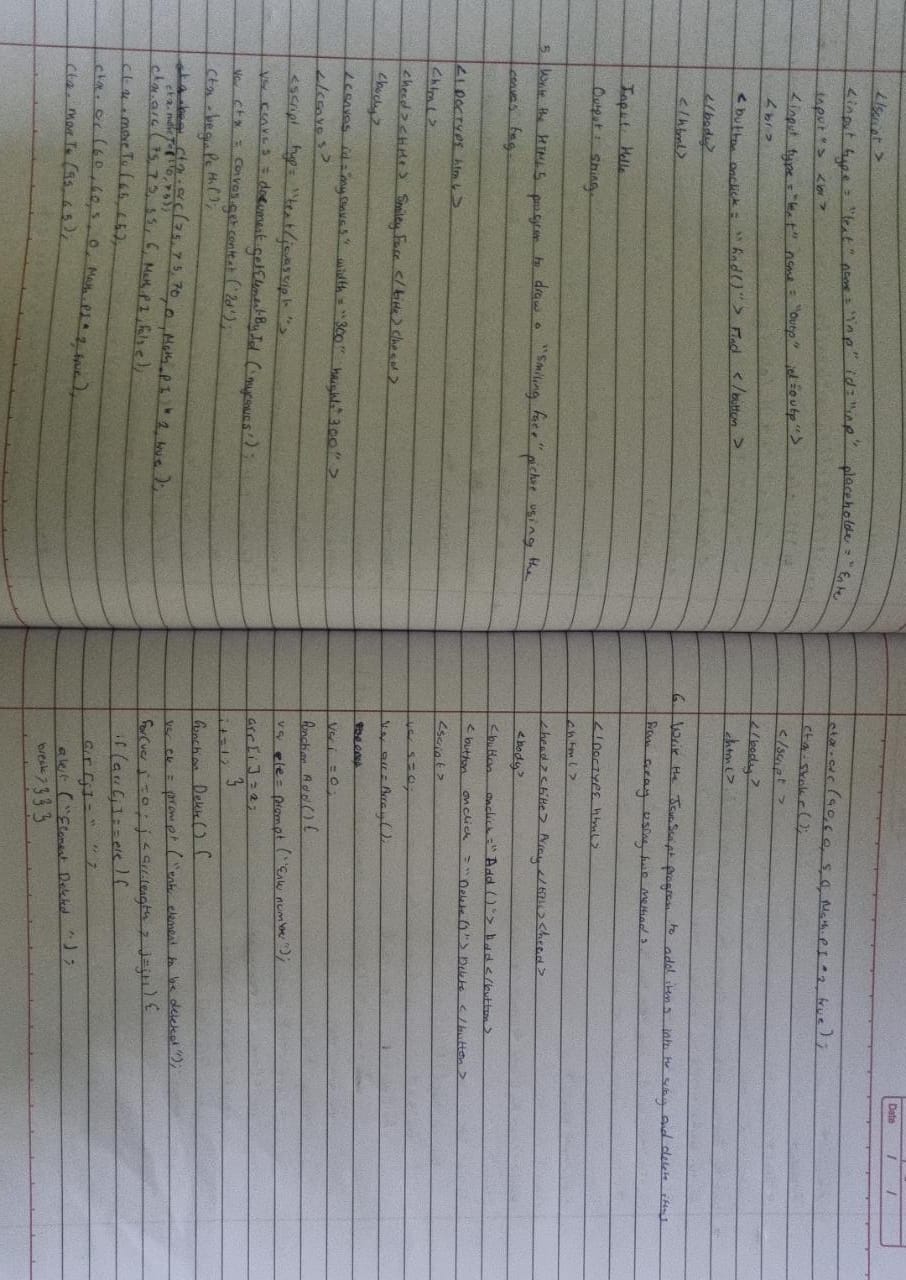 </script>
<input type = "text" name = "inp" id = "inp" placeholder = "Ente
input"> <br>
<input type = "text" name = "outp" id = outp">
<br>
<button onclick = "find()"> Find </button>
</body>
</html>
Input Hello
Output: string
5. Write the HTML5 program to draw a "smiling face" picture using the
canvas tag.
<!DOCTYPE html>
<html>
<head><title> Smiley Face </title></head>
<body>
<canvas id="mycanvas" width = "300" height="300">
</canvas>
<script type= "text/javascript">
var canvas = document.getElementById('mycanvas');
var ctx = canvas.getcontext('2d');
ctx.beginPath();
ctx.arc(75,75,70,0,Math.PI*2,true);
ctx.moveTo(110,75);
ctx.arc(75,75,35,6,Math.PI,false);
ctx.moveTo(65,65);
ctx.arc(60,60,5,0,Math.PI*2,true);
ctx.moveTo(95,65);
Date / /
ctx.arc(90,60,5,0,Math.PI*2,true);
ctx.stroke();
</script>
</body>
<html>
6 Write the JavaScript program to add items into array and delete items
from array using two methods.
<!DOCTYPE html>
<html>
<head><title> Array </title><head>
<body>
<button onclick="Add()"> Add </button>
<button onclick = "Delete()"> Delete </button>
<script>
var s=0;
var arr=Array();
var i=0;
function Add(){
var ele=prompt("Enter number");
arr[i]=a;
i+=1; }
function Delete(){
var ele=prompt("enter element to be deleted");
for(var j=0;j<arr.length;j=j+1){
if(arr[j]==ele){
arr[j]=" ";
alert("Element Deleted");
break;}}}